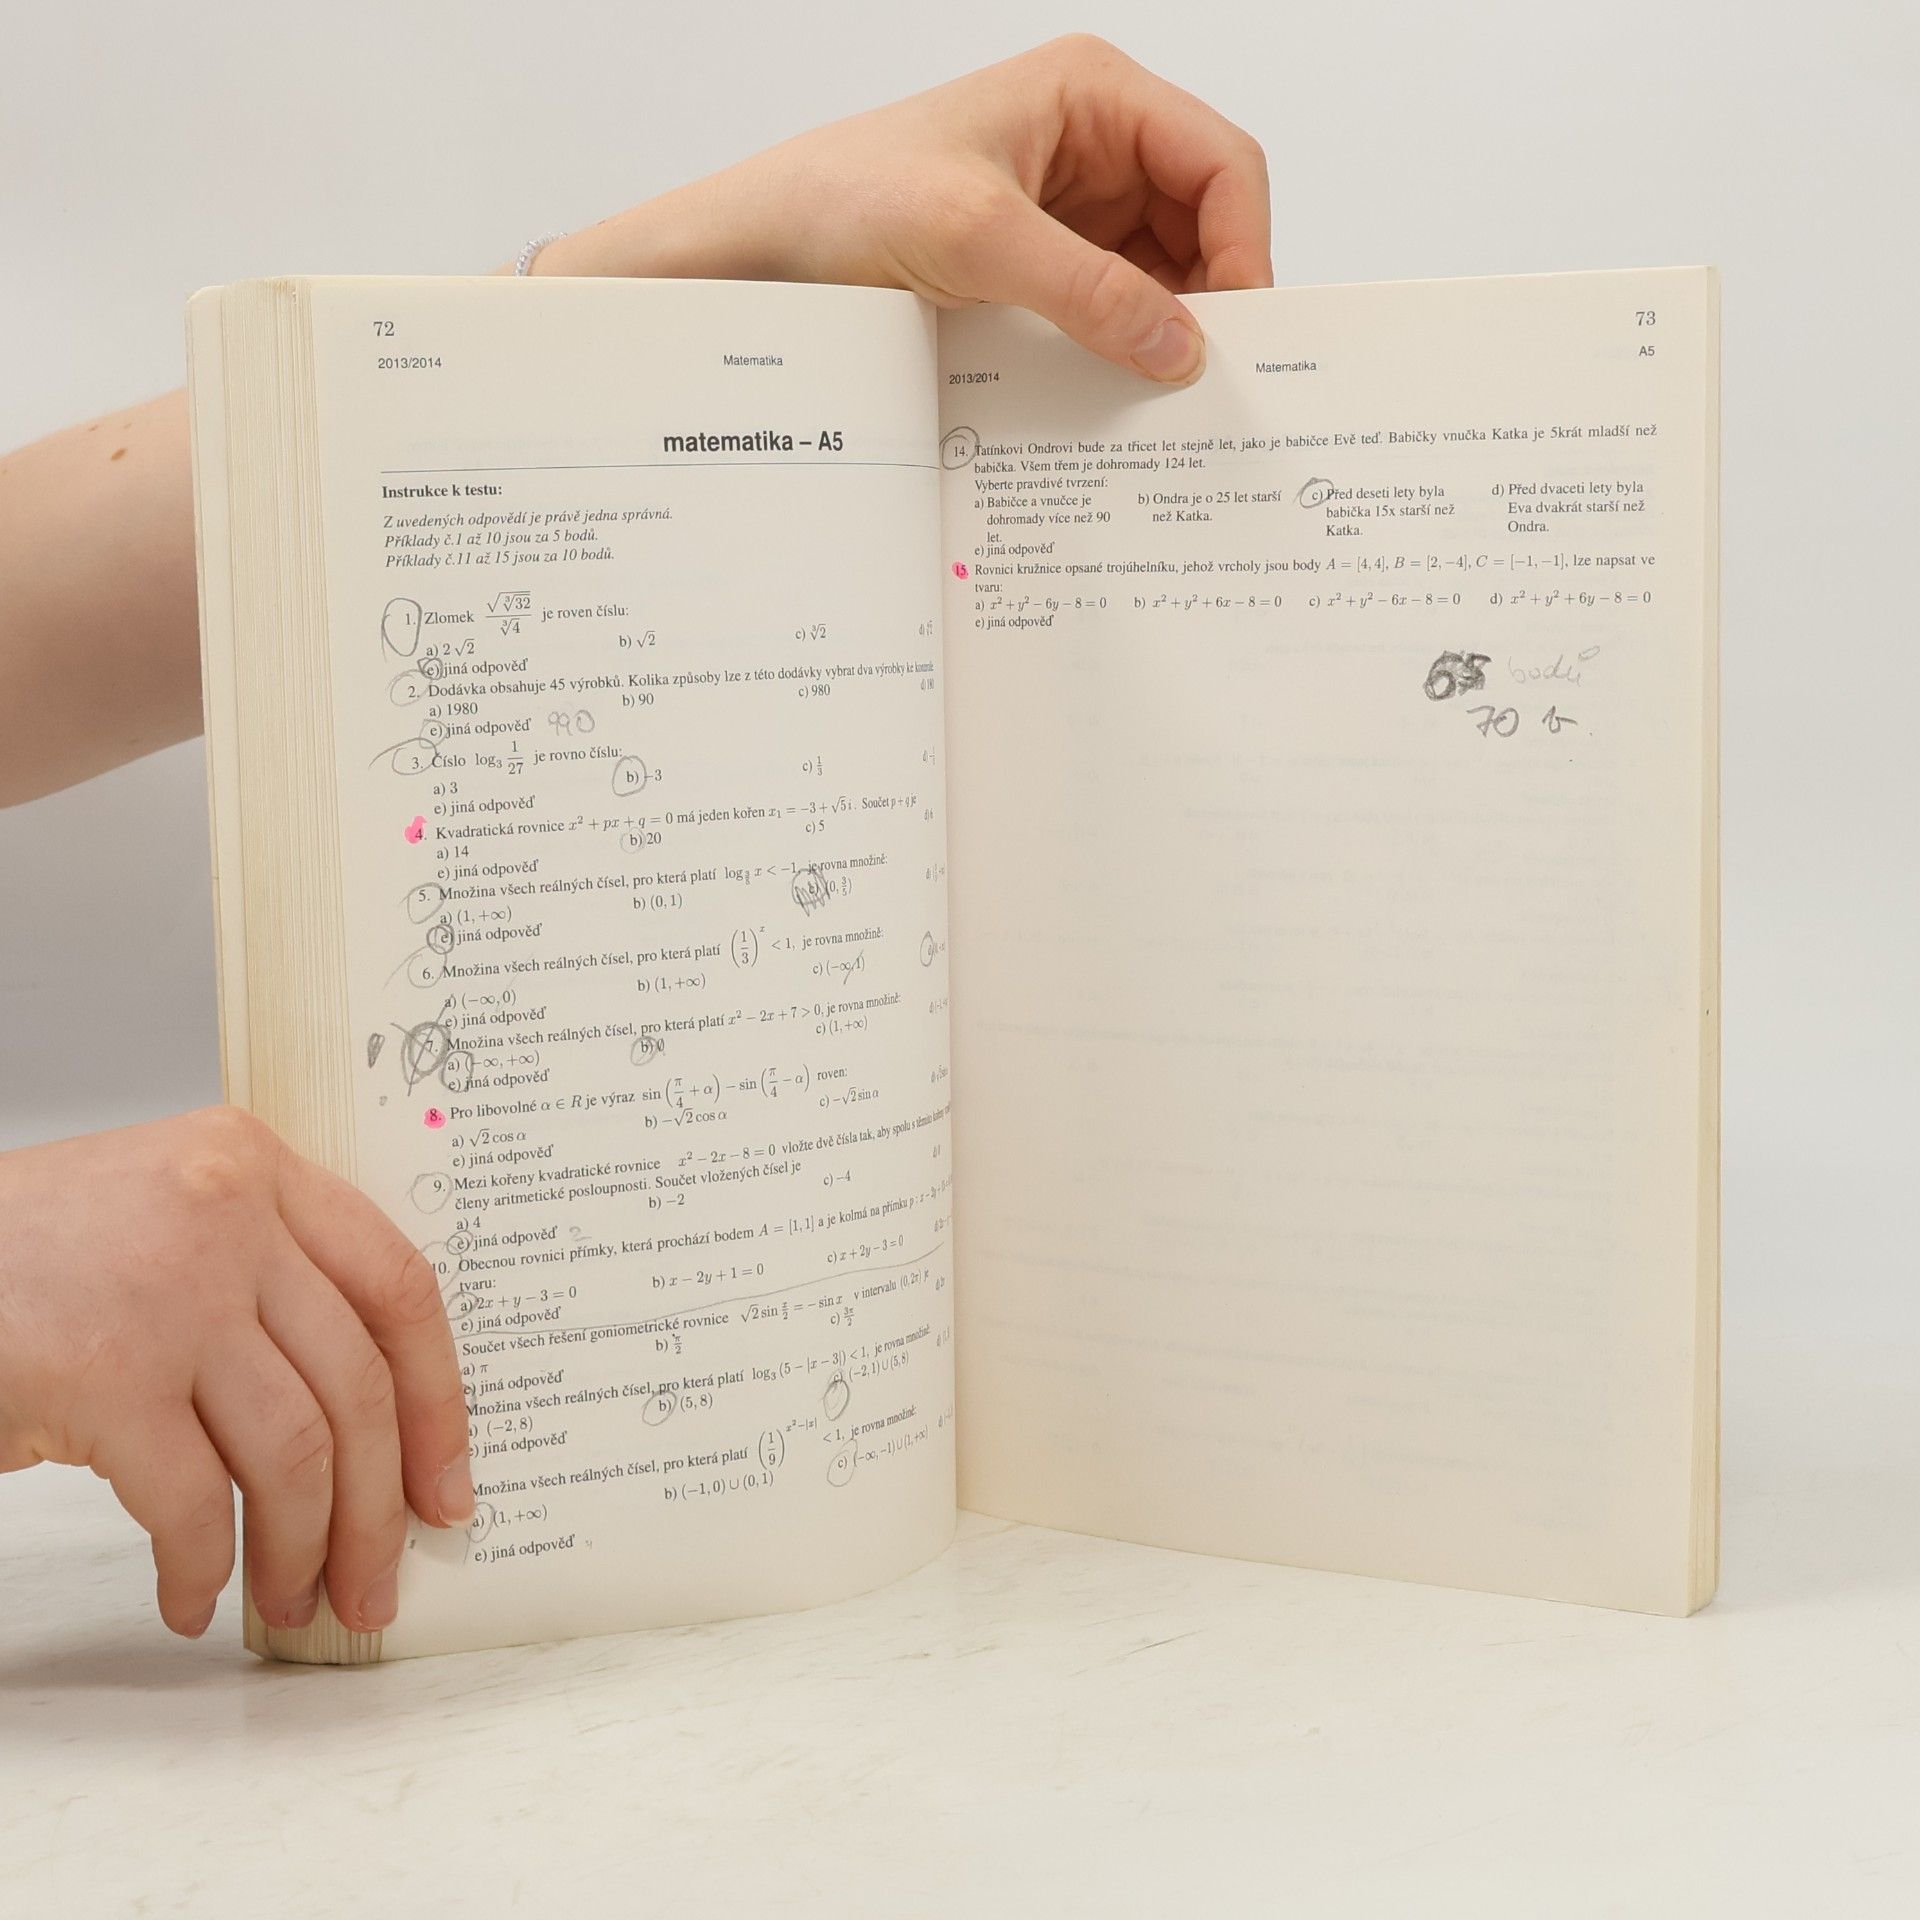 72
2013/2014 Matematika
matematika – A5
Instrukce k testu:
Z uvedených odpovědí je právě jedna správná.
Příklady č.1 až 10 jsou za 5 bodů.
Příklady č.11 až 15 jsou za 10 bodů.
1. Zlomek √∛32 / ∛4 je roven číslu:
a) 2√2 b) √2 c) ∛2
e) jiná odpověď
2. Dodávka obsahuje 45 výrobků. Kolika způsoby lze z této dodávky vybrat dva výrobky ke
a) 1980 b) 90 c) 980
e) jiná odpověď 990
3. Číslo log₃ 1/27 je rovno číslu:
a) 3 b) −3 c) 1/3
e) jiná odpověď
4. Kvadratická rovnice x² + px + q = 0 má jeden kořen x₁ = −3 + √5 i. Součet p + q je
a) 14 b) 20 c) 5 d) 6
e) jiná odpověď
5. Množina všech reálných čísel, pro která platí log_{3/5} x < −1, je rovna množině:
a) (1, +∞) b) (0, 1) c) (0, 3/5)
e) jiná odpověď
6. Množina všech reálných čísel, pro která platí (1/3)^x < 1, je rovna množině:
a) (−∞, 0) b) (1, +∞) c) (−∞, 1)
e) jiná odpověď
7. Množina všech reálných čísel, pro která platí x² − 2x + 7 > 0, je rovna množině:
a) (−∞, +∞) b) ∅ c) (1, +∞)
e) jiná odpověď
8. Pro libovolné α ∈ R je výraz sin (π/4 + α) − sin (π/4 − α) roven:
a) √2 cos α b) −√2 cos α c) −√2 sin α
e) jiná odpověď
9. Mezi kořeny kvadratické rovnice x² − 2x − 8 = 0 vložte dvě čísla tak, aby spolu s těmito kořeny
členy aritmetické posloupnosti. Součet vložených čísel je
a) 4 b) −2 c) −4
e) jiná odpověď 2
10. Obecnou rovnici přímky, která prochází bodem A = [1, 1] a je kolmá na přímku p :
tvaru:
a) 2x + y − 3 = 0 b) x − 2y + 1 = 0 c) x + 2y − 3 = 0
e) jiná odpověď
Součet všech řešení goniometrické rovnice √2 sin x/2 = − sin x v intervalu (0, 2π) je
a) π b) π/2 c) 3π/2
e) jiná odpověď
Množina všech reálných čísel, pro která platí log₃ (5 − |x − 3|) < 1, je rovna množině
(−2, 8) b) (5, 8) c) (−2, 1) ∪ (5, 8)
e) jiná odpověď
Množina všech reálných čísel, pro která platí (1/9)^{x²−|x|} < 1, je rovna množině:
a) (1, +∞) b) (−1, 0) ∪ (0, 1) c) (−∞, −1) ∪ (1, +∞)
e) jiná odpověď
73
2013/2014 Matematika A5
14. Tatínkovi Ondrovi bude za třicet let stejně let, jako je babičce Evě teď. Babičky vnučka Katka je 5krát mladší než
babička. Všem třem je dohromady 124 let.
Vyberte pravdivé tvrzení:
a) Babičce a vnučce je b) Ondra je o 25 let starší c) Před deseti lety byla d) Před dvaceti lety byla
dohromady více než 90 než Katka. babička 15x starší než Eva dvakrát starší než
let. Katka. Ondra.
e) jiná odpověď
15. Rovnici kružnice opsané trojúhelníku, jehož vrcholy jsou body A = [4, 4], B = [2, −4], C = [−1, −1], lze napsat ve
tvaru:
a) x² + y² − 6y − 8 = 0 b) x² + y² + 6x − 8 = 0 c) x² + y² − 6x − 8 = 0 d) x² + y² + 6y − 8 = 0
e) jiná odpověď
65 bodů
70 b.